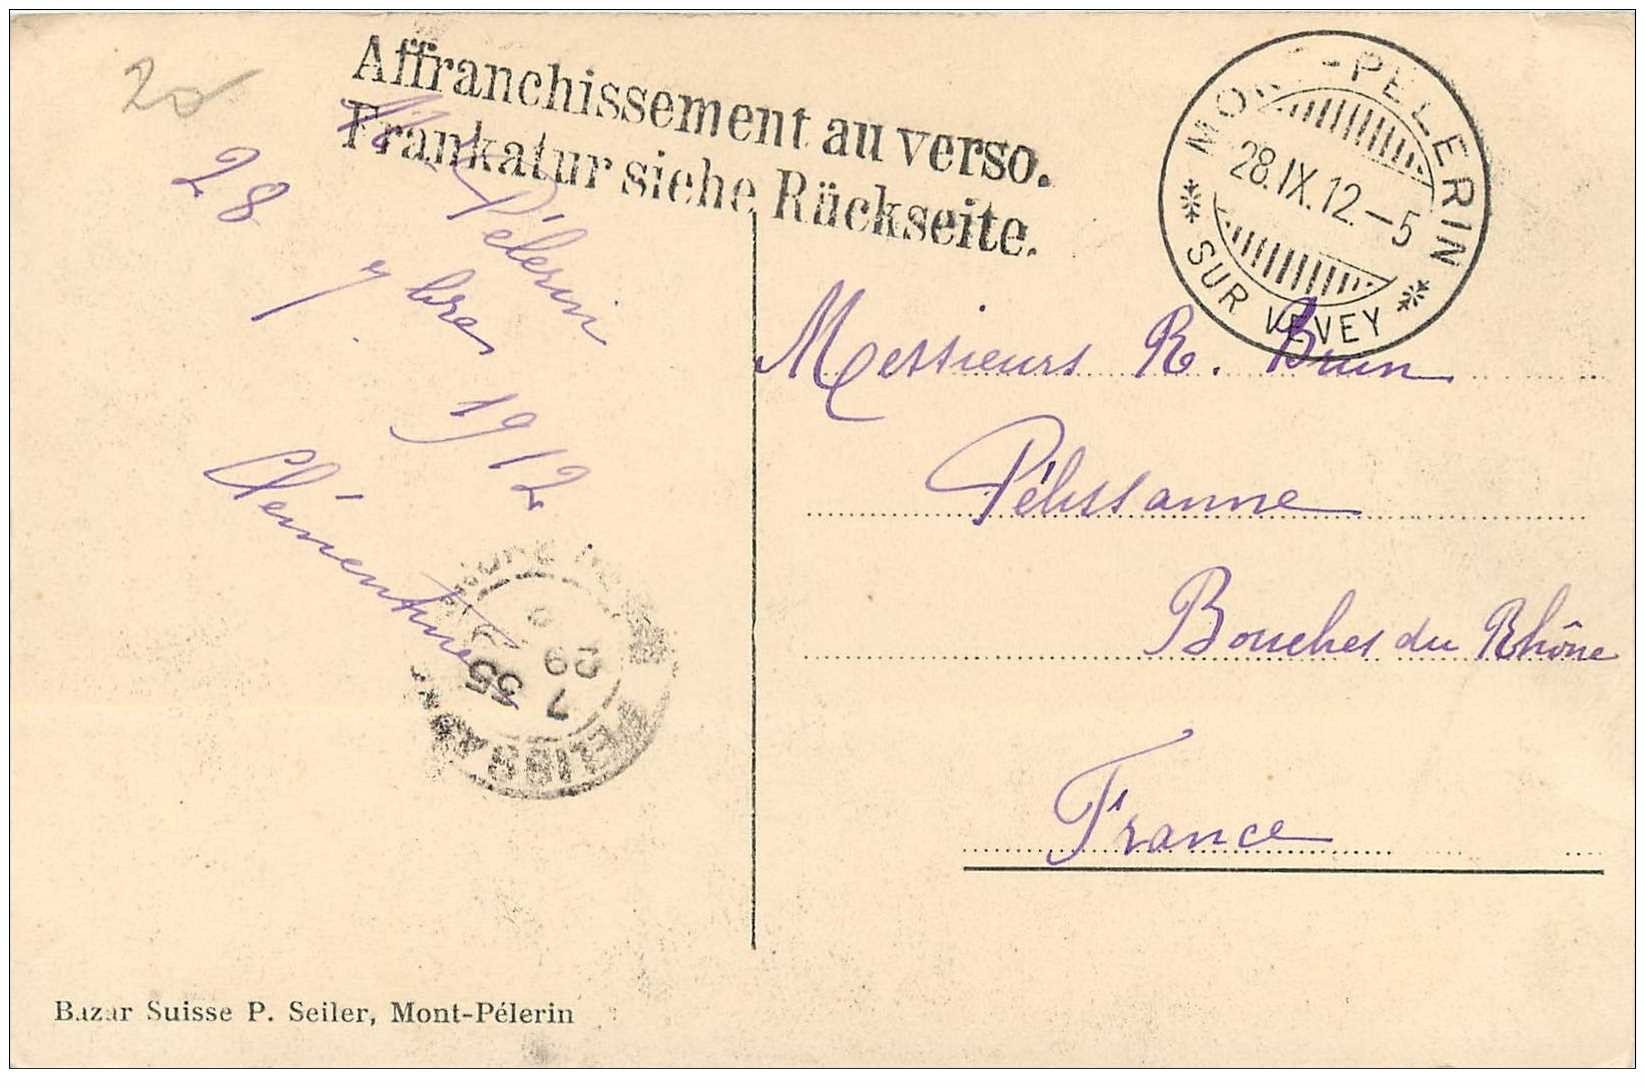 20
Affranchissement au verso.
Frankatur siehe Rückseite.
MONT-PÉLERIN
28.IX.12.-5
SUR VEVEY
Mt Pélerin
28 7bres 1912
Clémentine
Messieurs R. Brun
Pélissanne
Bouches du Rhône
France
7 35
29
Bazar Suisse P. Seiler, Mont-Pélerin